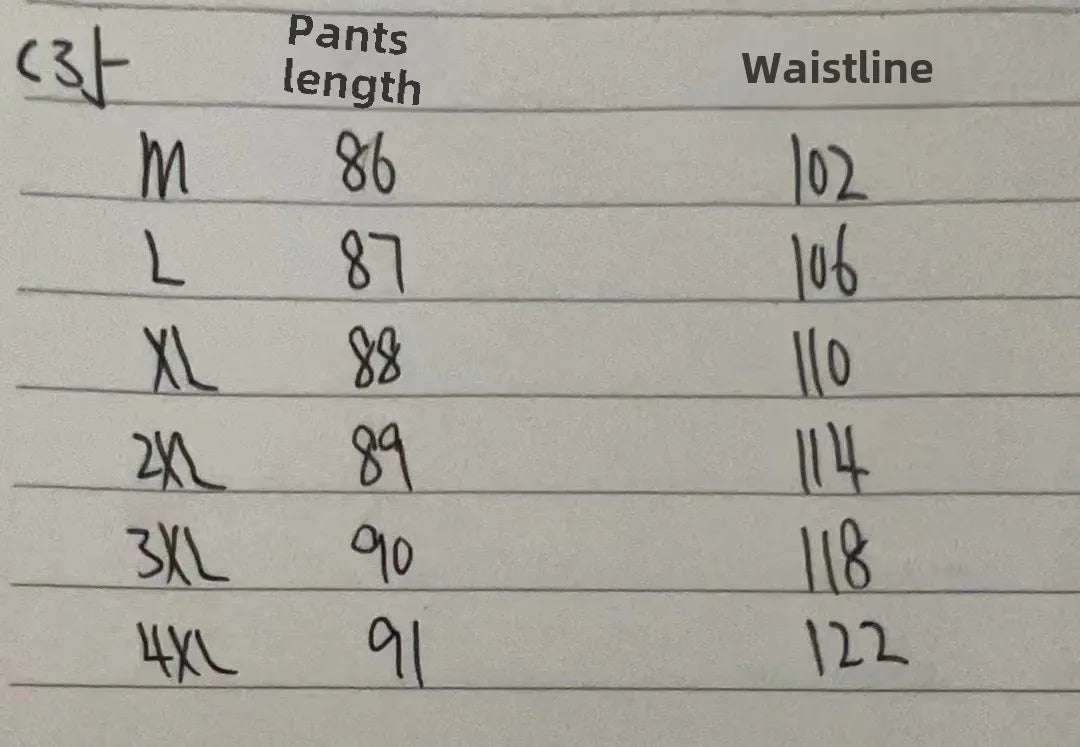 Pants length Waistline
M 86 102
L 87 106
XL 88 110
2XL 89 114
3XL 90 118
4XL 91 122